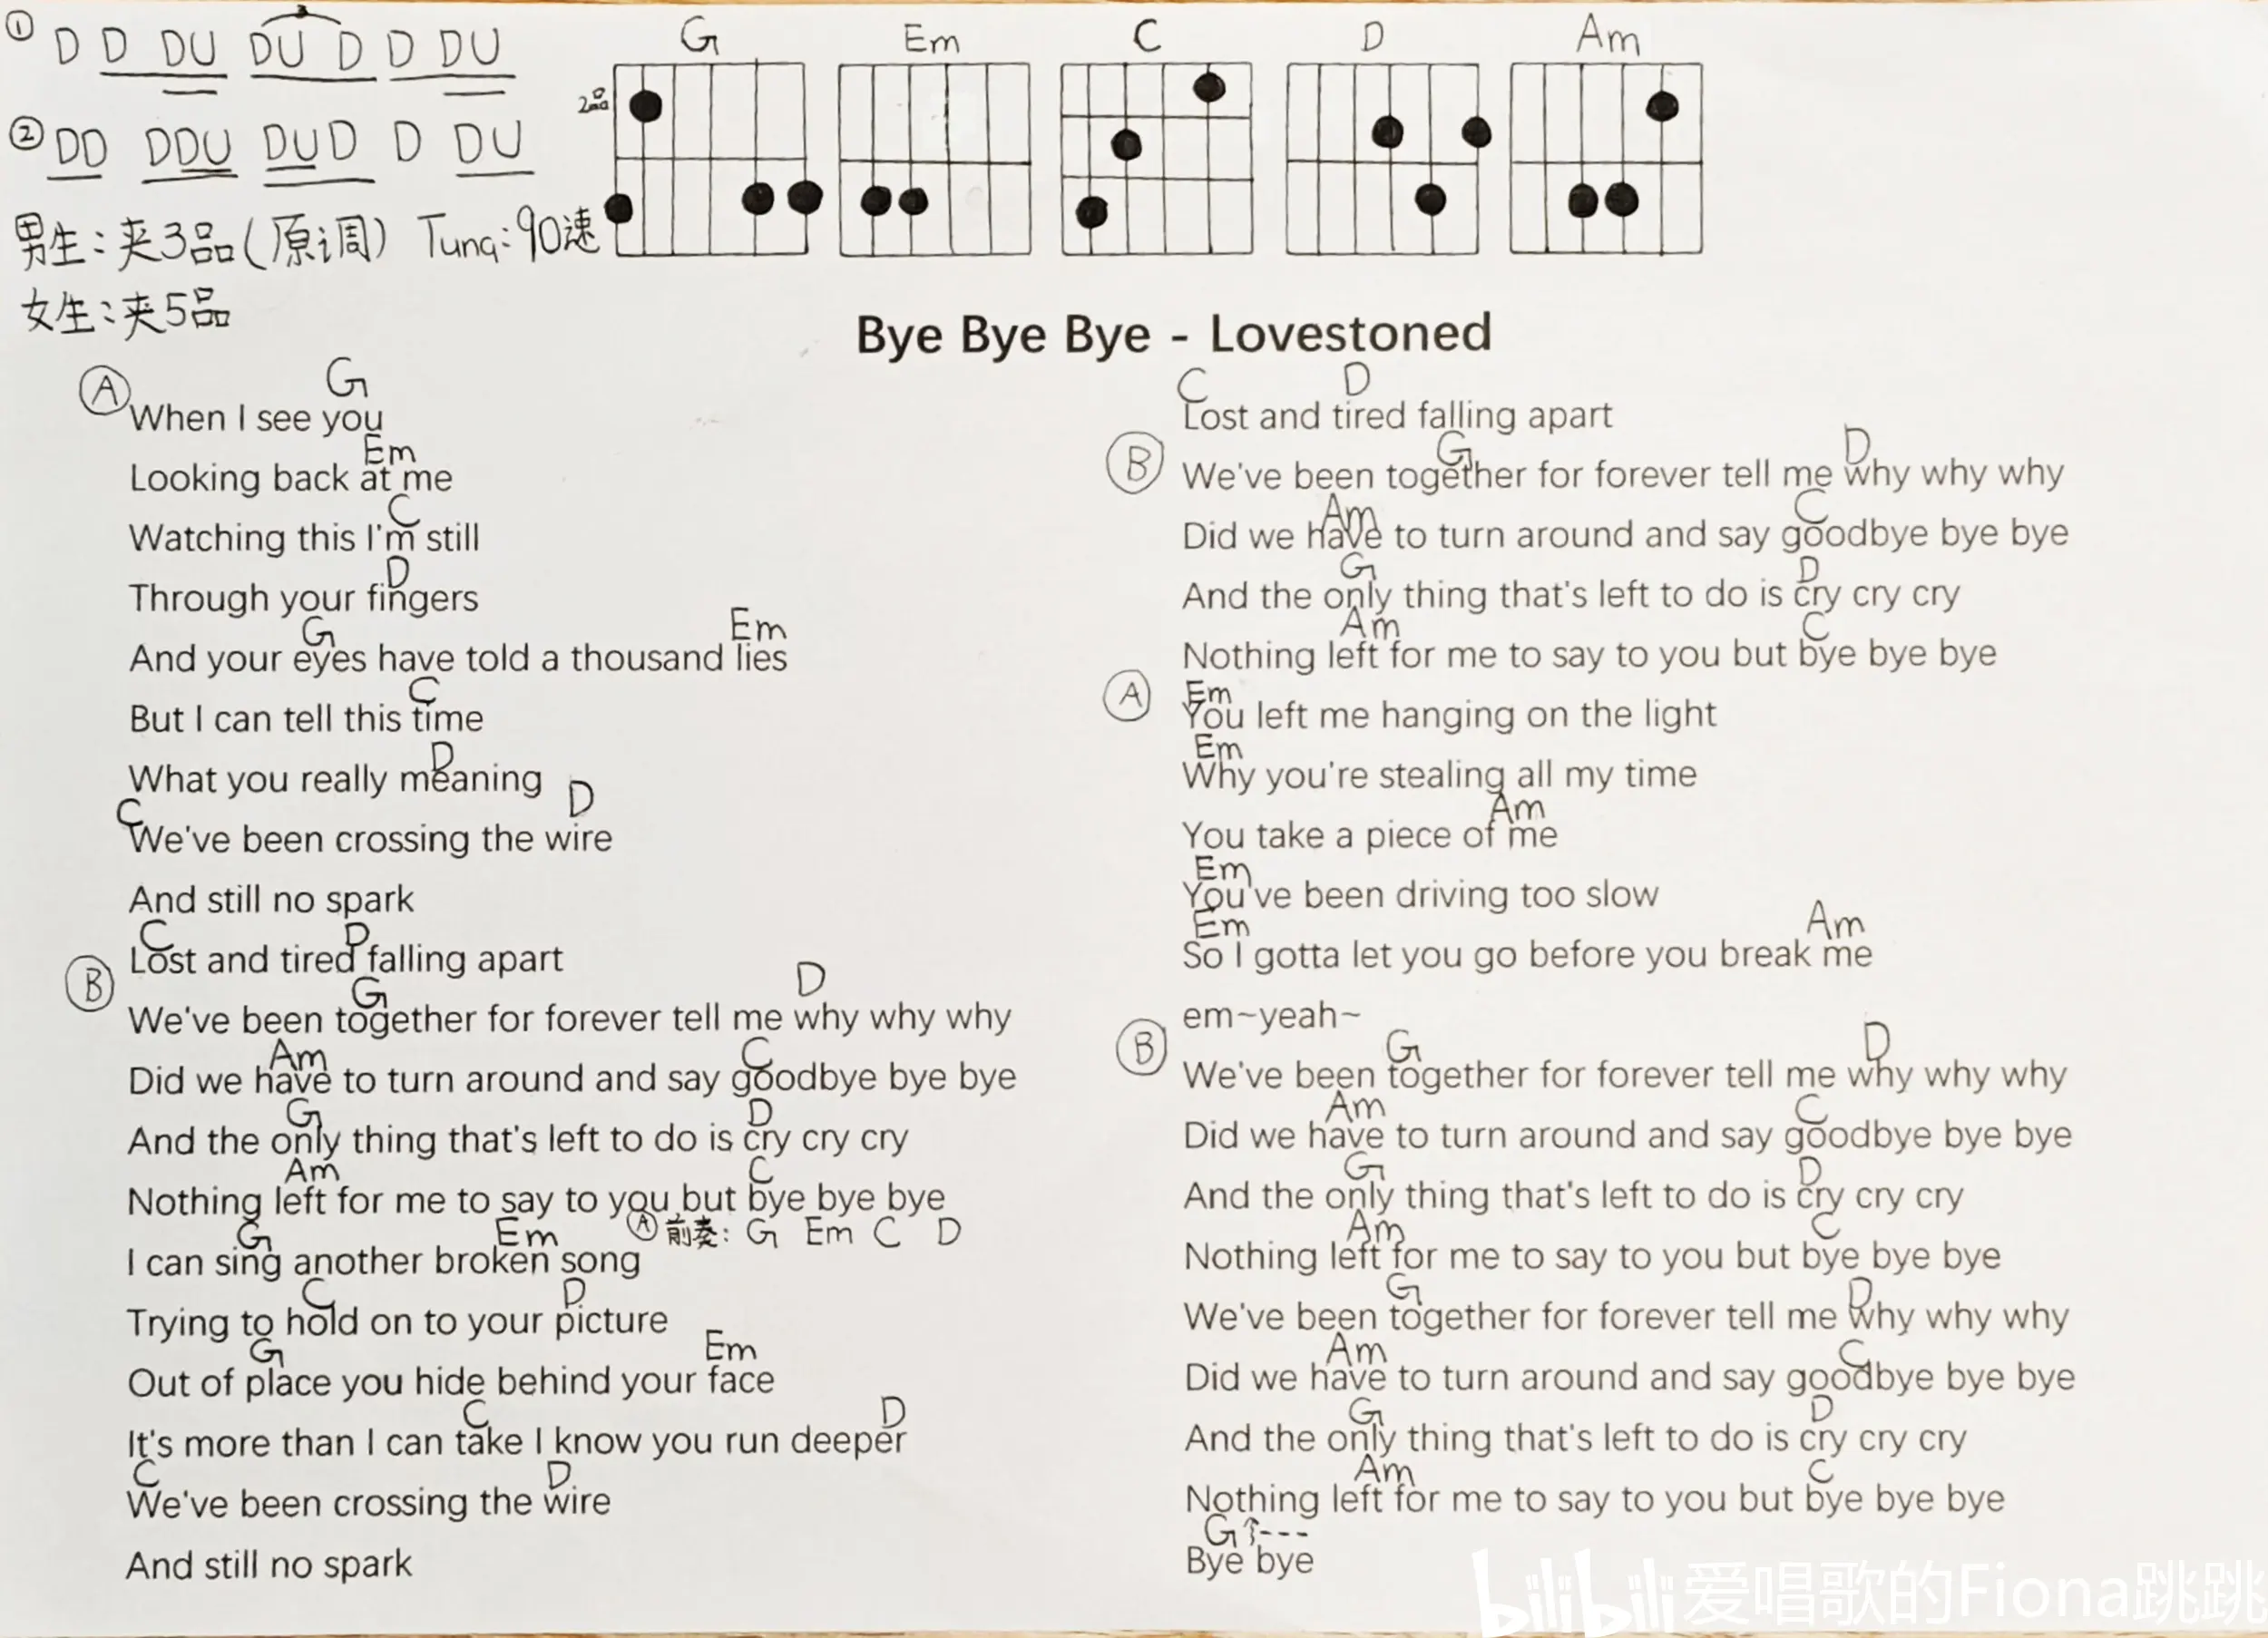 ① D D DU DU D D DU
3
② DD DDU DUD D DU
男生：夹3品（原调） Tung：90速
女生：夹5品
G Em C D Am
2品
Bye Bye Bye - Lovestoned
Ⓐ G
When I see you
Em
Looking back at me
C
Watching this I'm still
D
Through your fingers
G Em
And your eyes have told a thousand lies
C
But I can tell this time
D
What you really meaning
C D
We've been crossing the wire
And still no spark
C D
Lost and tired falling apart
Ⓑ G D
We've been together for forever tell me why why why
Am C
Did we have to turn around and say goodbye bye bye
G D
And the only thing that's left to do is cry cry cry
Am C
Nothing left for me to say to you but bye bye bye
Ⓐ 前奏：G Em C D
G Em
I can sing another broken song
C D
Trying to hold on to your picture
G Em
Out of place you hide behind your face
C D
It's more than I can take I know you run deeper
C D
We've been crossing the wire
And still no spark
C D
Lost and tired falling apart
Ⓑ G D
We've been together for forever tell me why why why
Am C
Did we have to turn around and say goodbye bye bye
G D
And the only thing that's left to do is cry cry cry
Am C
Nothing left for me to say to you but bye bye bye
Ⓐ Em
You left me hanging on the light
Em
Why you're stealing all my time
Am
You take a piece of me
Em
You've been driving too slow
Em Am
So I gotta let you go before you break me
em~yeah~
Ⓑ G D
We've been together for forever tell me why why why
Am C
Did we have to turn around and say goodbye bye bye
G D
And the only thing that's left to do is cry cry cry
Am C
Nothing left for me to say to you but bye bye bye
G D
We've been together for forever tell me why why why
Am C
Did we have to turn around and say goodbye bye bye
G D
And the only thing that's left to do is cry cry cry
Am C
Nothing left for me to say to you but bye bye bye
G↑---
Bye bye
bilibili 爱唱歌的Fiona跳跳